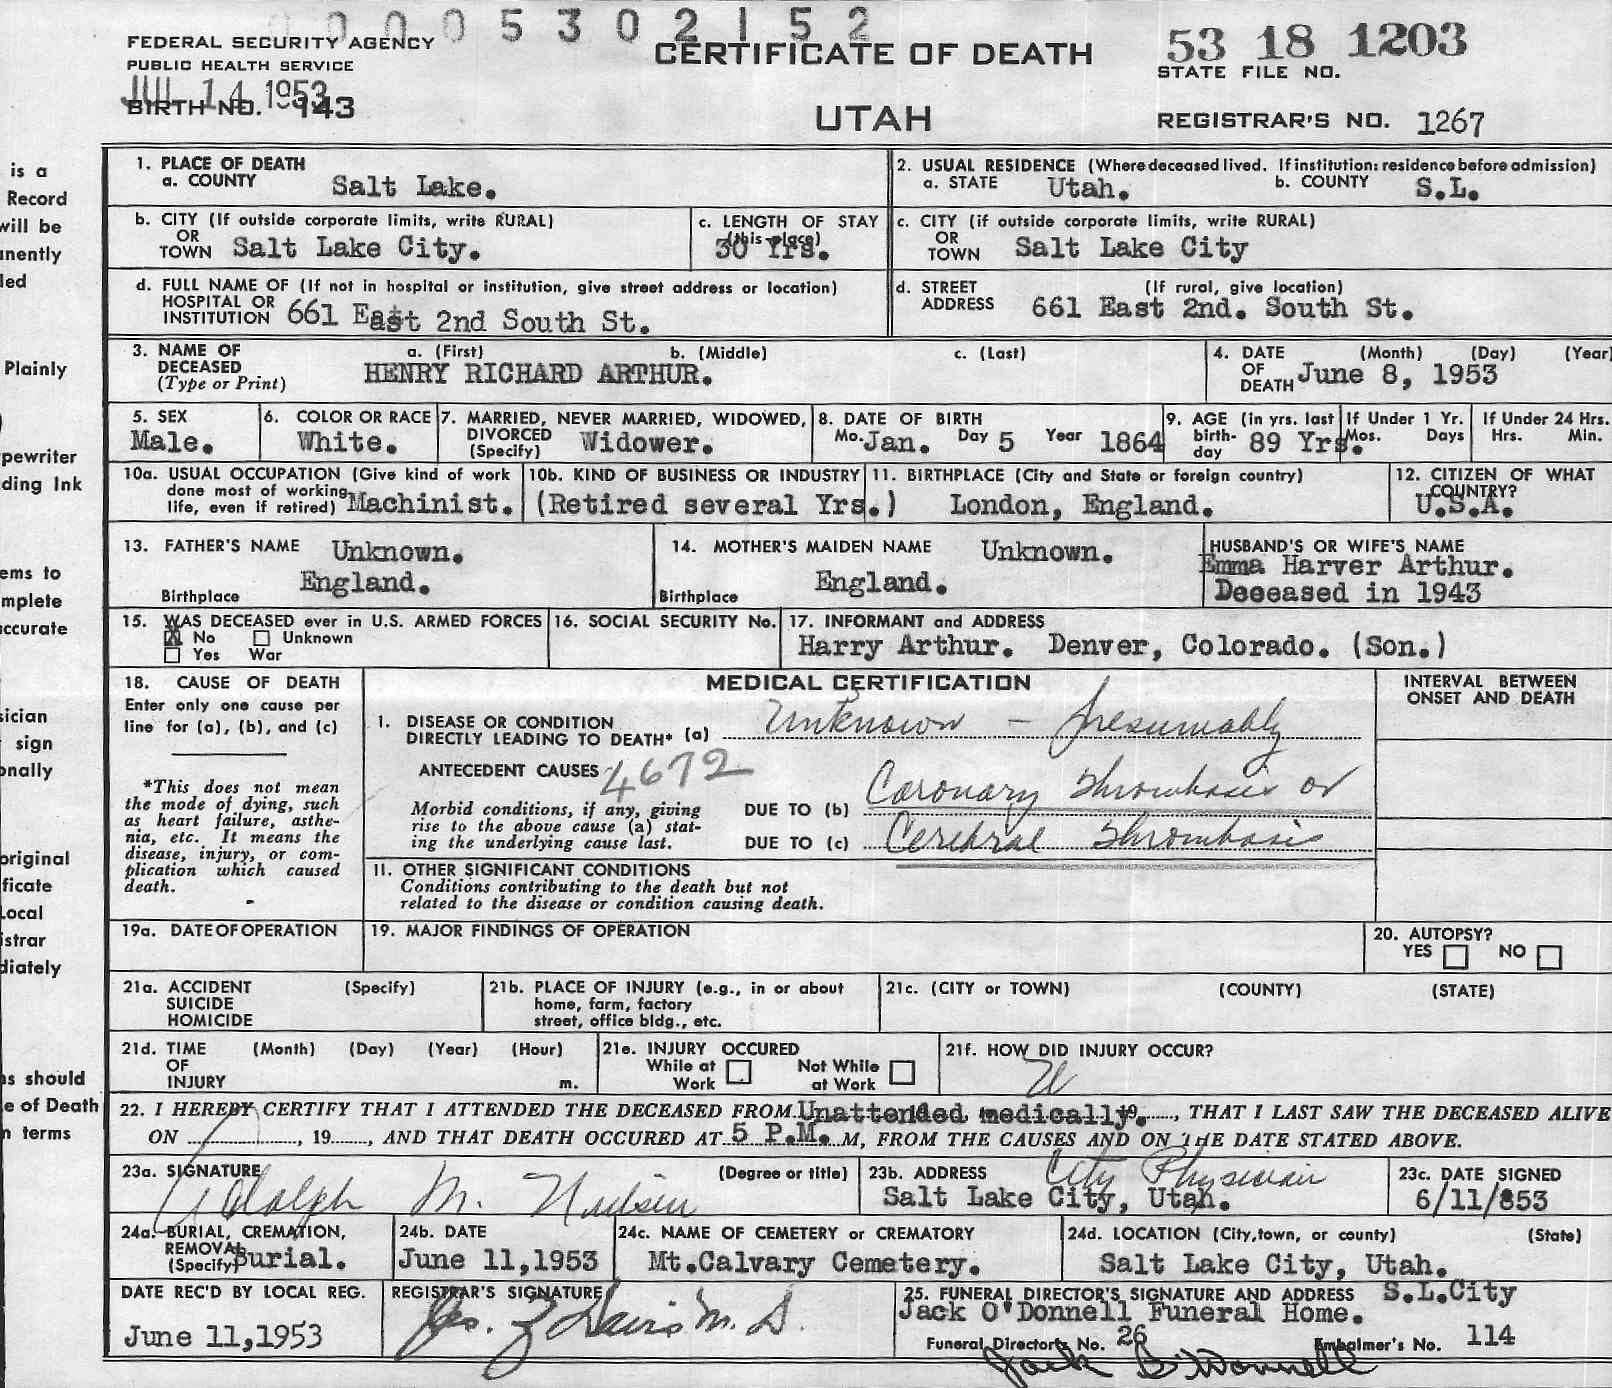 0 0 0 0 5 3 0 2 1 5 2
FEDERAL SECURITY AGENCY
PUBLIC HEALTH SERVICE
JUL 14 1953
BIRTH NO. 143
CERTIFICATE OF DEATH
UTAH
53 18 1203
STATE FILE NO.
REGISTRAR'S NO. 1267
is a
Record
will be
nently
led
Plainly
pewriter
ding Ink
ems to
mplete
accurate
sician
sign
onally
original
ficate
Local
istrar
diately
ns should
e of Death
n terms
1. PLACE OF DEATH
a. COUNTY Salt Lake.
2. USUAL RESIDENCE (Where deceased lived. If institution: residence before admission)
a. STATE Utah. b. COUNTY S.L.
b. CITY (If outside corporate limits, write RURAL)
OR
TOWN Salt Lake City.
c. LENGTH OF STAY
(this place)
30 Yrs.
c. CITY (if outside corporate limits, write RURAL)
OR
TOWN Salt Lake City
d. FULL NAME OF (If not in hospital or institution, give street address or location)
HOSPITAL OR
INSTITUTION 661 East 2nd South St.
d. STREET (If rural, give location)
ADDRESS 661 East 2nd. South St.
3. NAME OF a. (First) b. (Middle) c. (Last)
DECEASED HENRY RICHARD ARTHUR.
(Type or Print)
4. DATE (Month) (Day) (Year)
OF
DEATH June 8, 1953
5. SEX
Male.
6. COLOR OR RACE
White.
7. MARRIED, NEVER MARRIED, WIDOWED,
DIVORCED Widower.
(Specify)
8. DATE OF BIRTH
Mo. Jan. Day 5 Year 1864
9. AGE (in yrs. last
birth-
day 89 Yrs.
If Under 1 Yr.
Mos. Days
If Under 24 Hrs.
Hrs. Min.
10a. USUAL OCCUPATION (Give kind of work
done most of working
life, even if retired) Machinist.
10b. KIND OF BUSINESS OR INDUSTRY
(Retired several Yrs.)
11. BIRTHPLACE (City and State or foreign country)
London, England.
12. CITIZEN OF WHAT
COUNTRY?
U.S.A.
13. FATHER'S NAME Unknown.
England.
Birthplace
14. MOTHER'S MAIDEN NAME Unknown.
England.
Birthplace
HUSBAND'S OR WIFE'S NAME
Emma Harver Arthur.
Deceased in 1943
15. WAS DECEASED ever in U.S. ARMED FORCES
X No Unknown
Yes War
16. SOCIAL SECURITY No.
17. INFORMANT and ADDRESS
Harry Arthur. Denver, Colorado. (Son.)
18. CAUSE OF DEATH
Enter only one cause per
line for (a), (b), and (c)
*This does not mean
the mode of dying, such
as heart failure, asthe-
nia, etc. It means the
disease, injury, or com-
plication which caused
death.
MEDICAL CERTIFICATION
1. DISEASE OR CONDITION
DIRECTLY LEADING TO DEATH* (a) Unknown - Presumably
ANTECEDENT CAUSES 4672
Morbid conditions, if any, giving
rise to the above cause (a) stat-
ing the underlying cause last.
DUE TO (b) Coronary Thrombosis or
DUE TO (c) Cerebral Thrombosis
11. OTHER SIGNIFICANT CONDITIONS
Conditions contributing to the death but not
related to the disease or condition causing death.
INTERVAL BETWEEN
ONSET AND DEATH
19a. DATE OF OPERATION
19. MAJOR FINDINGS OF OPERATION
20. AUTOPSY?
YES NO
21a. ACCIDENT (Specify)
SUICIDE
HOMICIDE
21b. PLACE OF INJURY (e.g., in or about
home, farm, factory
street, office bldg., etc.
21c. (CITY or TOWN) (COUNTY) (STATE)
21d. TIME (Month) (Day) (Year) (Hour)
OF
INJURY m.
21e. INJURY OCCURED
While at Not While
Work at Work
21f. HOW DID INJURY OCCUR?
22. I HEREBY CERTIFY THAT I ATTENDED THE DECEASED FROM Unattended medically. 19......, THAT I LAST SAW THE DECEASED ALIVE
ON ............, 19......, AND THAT DEATH OCCURED AT 5 P.M. M, FROM THE CAUSES AND ON THE DATE STATED ABOVE.
23a. SIGNATURE (Degree or title)
Adolph M. Nielsen
23b. ADDRESS City Physician
Salt Lake City, Utah.
23c. DATE SIGNED
6/11/853
24a. BURIAL, CREMATION,
REMOVAL
(Specify) Burial.
24b. DATE
June 11,1953
24c. NAME OF CEMETERY or CREMATORY
Mt.Calvary Cemetery.
24d. LOCATION (City, town, or county) (State)
Salt Lake City, Utah.
DATE REC'D BY LOCAL REG.
June 11,1953
REGISTRAR'S SIGNATURE
Davis M.D.
25. FUNERAL DIRECTOR'S SIGNATURE AND ADDRESS S.L.City
Jack O'Donnell Funeral Home.
Funeral Directors No. 26 Embalmer's No. 114
Jack O'Donnell